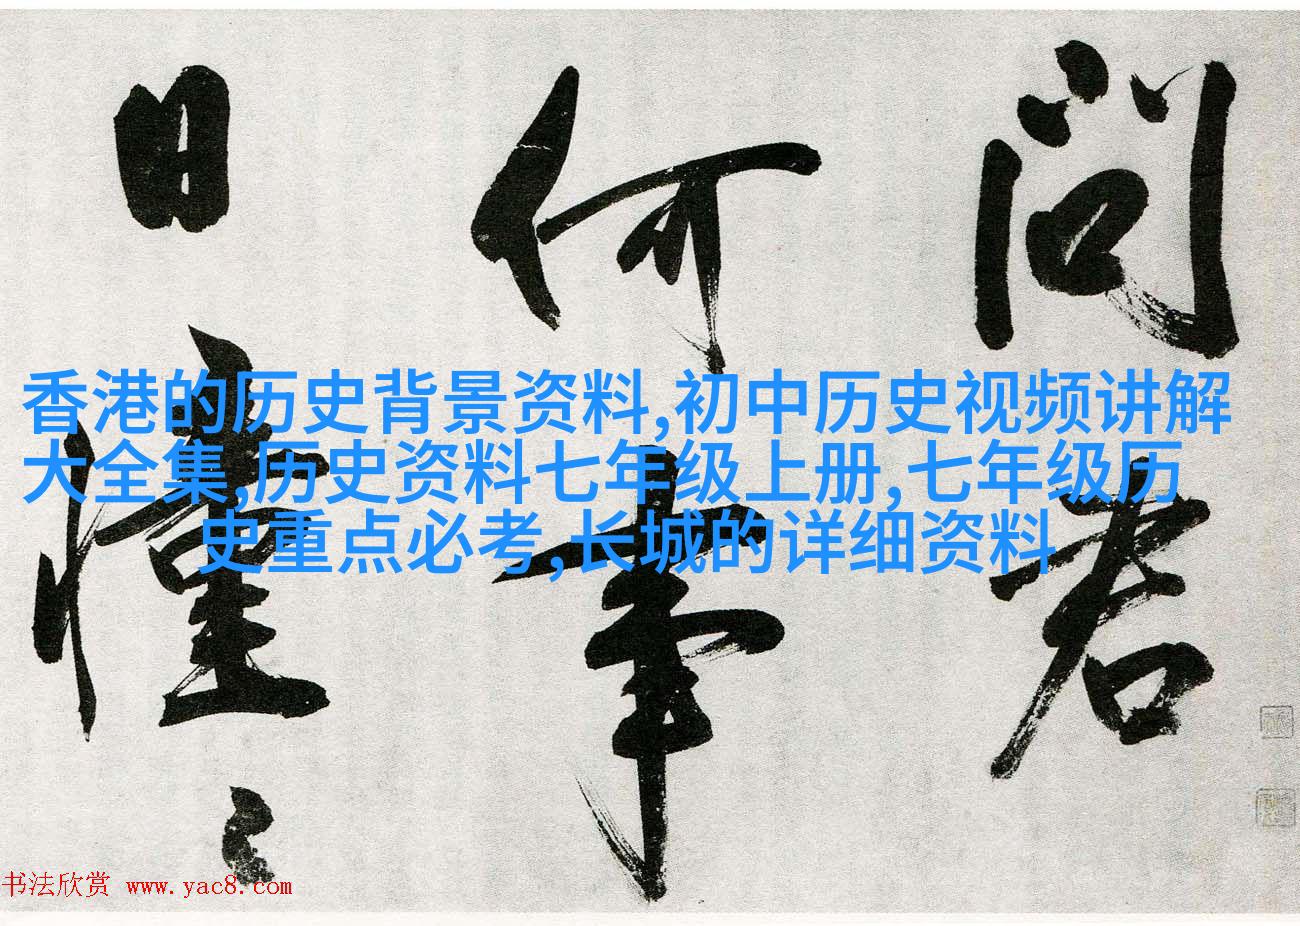 問君
何事
日憧々
香港的历史背景资料,初中历史视频讲解
大全集,历史资料七年级上册,七年级历
史重点必考,长城的详细资料
书法欣赏 www.yac8.com